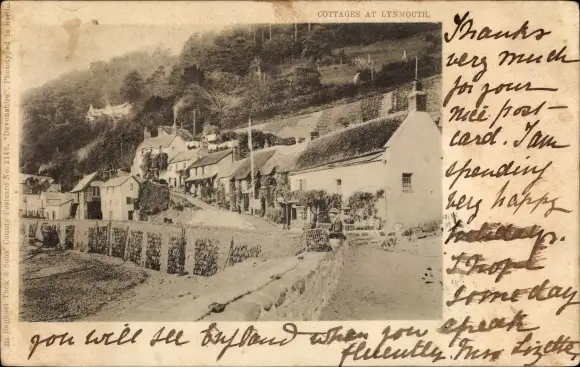 COTTAGES AT LYNMOUTH.
Thanks
very much
for your
nice post-
card. I am
spending
very happy
holidays.
I hope
someday
you will see England when you speak
fluently. Miss Lizette,
Raphael Tuck & Sons' County Postcard No. 2116, "Devonshire". Phototyped in Berlin